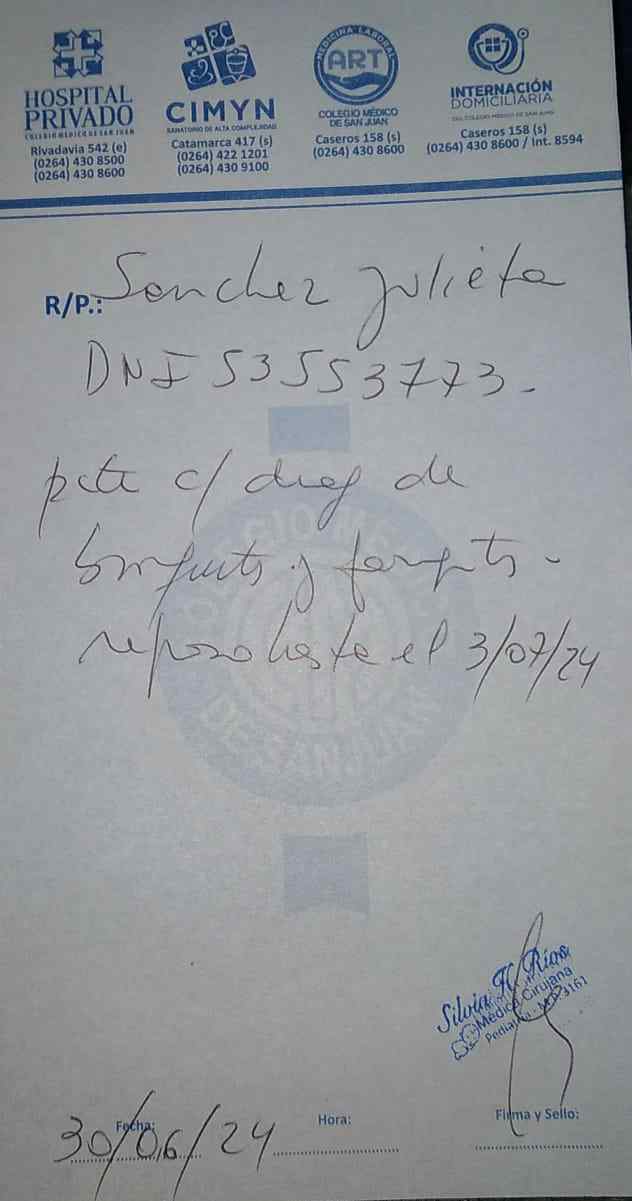 HOSPITAL
PRIVADO
COLEGIO MEDICO DE SAN JUAN
Rivadavia 542 (e)
(0264) 430 8500
(0264) 430 8600
CIMYN
SANATORIO DE ALTA COMPLEJIDAD
Catamarca 417 (s)
(0264) 422 1201
(0264) 430 9100
MEDICINA LABORAL
ART
COLEGIO MÉDICO
DE SAN JUAN
Caseros 158 (s)
(0264) 430 8600
INTERNACIÓN
DOMICILIARIA
DEL COLEGIO MÉDICO DE SAN JUAN
Caseros 158 (s)
(0264) 430 8600 / Int. 8594
R/P.: Sanchez Julieta
DNI 53553773.
pcte c/ diag de
y
reposo hasta el 3/07/24
COLEGIO MEDICO
DE SAN JUAN
Silvia H. Rios
Médica Cirujana
Pediatra - M.P. 3161
Fecha: 30/06/24
Hora:
Firma y Sello: